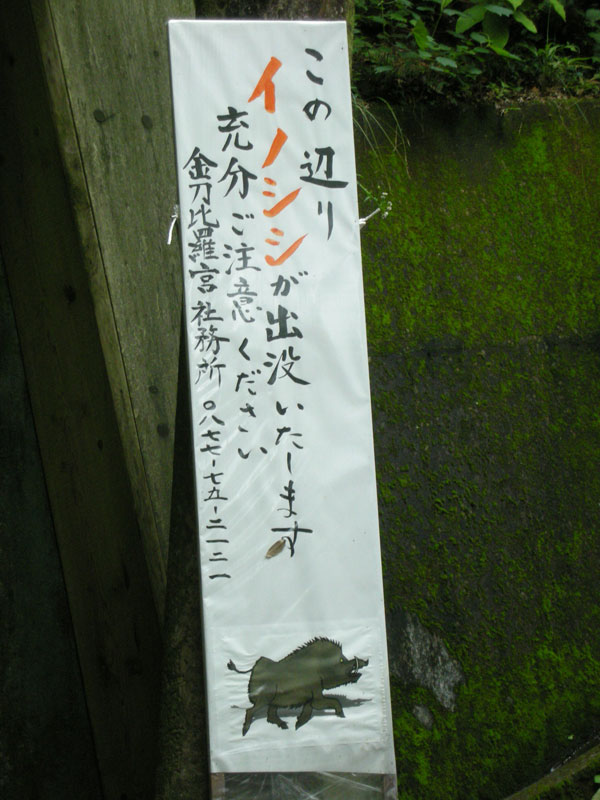 この辺り
イノシシが出没いたします
充分ご注意ください
金刀比羅宮社務所 〇八七七-七五-二一二一